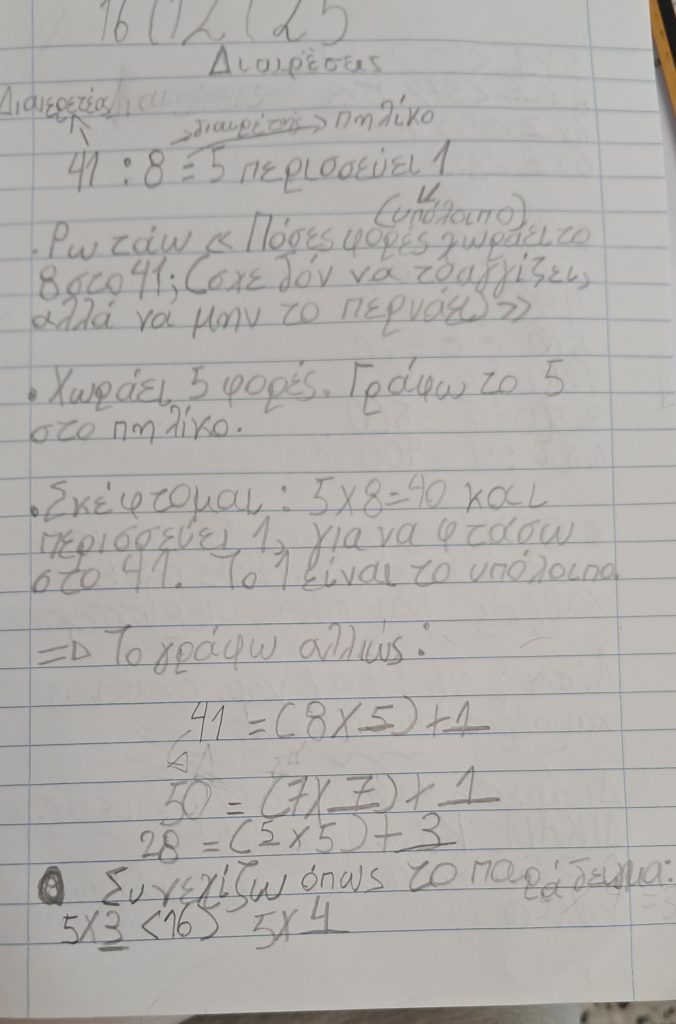 16 (12 (25
Διαιρέσεις
Διαιρετέος
διαιρέτης πηλίκο
41 : 8 = 5 περισσεύει 1
(υπόλοιπο)
. Ρωτάω « Πόσες φορές χωράει το
8 στο 41; (σχεδόν να το αγγίζει,
αλλά να μην το περνάει) »
• Χωράει 5 φορές. Γράφω το 5
στο πηλίκο.
• Σκέφτομαι : 5 x 8 = 40 και
περισσεύει 1, για να φτάσω
στο 41. Το 1 είναι το υπόλοιπο.
⇒ Το γράφω αλλιώς :
41 = (8 x 5) + 1
50 = (7 x 7) + 1
28 = (5 x 5) + 3
Συνεχίζω όπως το παράδειγμα:
5 x 3 < 16 > 5 x 4